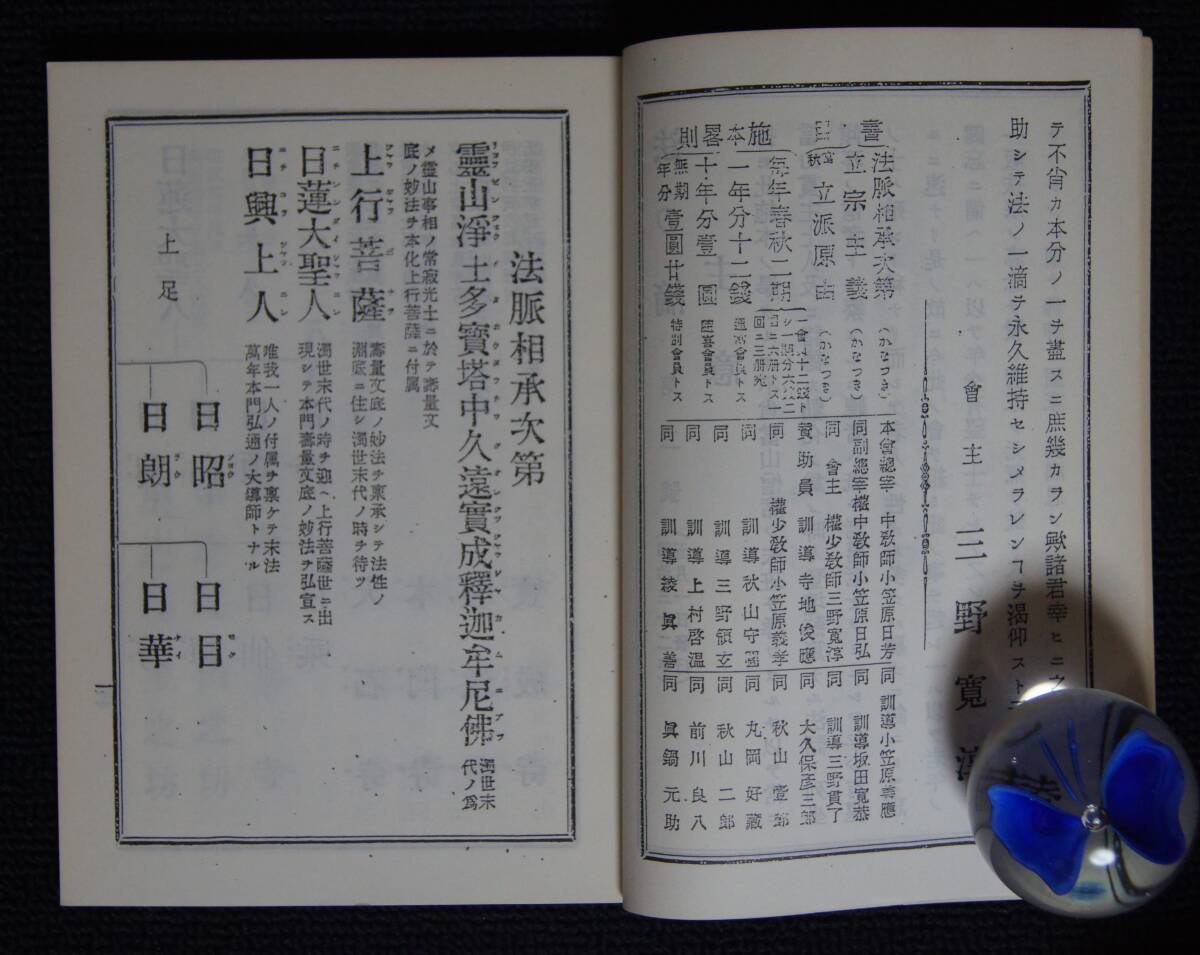 テ不肖カ本分ノ一チ盡スニ庶幾カラン歟諸君幸ヒニ
助シテ法ノ一滴テ永久維持セシメラレンヿヲ渴仰スト
會主 三野寬
書目
法脈相承次第 (かなつき)
立宗主義 (かなつき)
宮秋 立派原由 (かなつき)
施本畧則
每年春秋二期
一年分十二錢 通常會員トス
十年分壹圓 隨喜會員トス
無期年分 壹圓廿錢 特別會員トス
本會總宰 中敎師小笠原日芳
同副總宰權中敎師小笠原日弘
同 會主 權少敎師三野寬淳
贊助員 訓導寺地俊應
同 權少敎師小笠原義孝
同 訓導秋山守
同 訓導三野領玄
同 訓導上村啓溫
同 訓導綾眞善
同 訓導小笠原壽應
同 訓導坂田寬恭
同 訓導三野貫了
同 大久保彥三郎
同 秋山壹郎
同 丸岡好藏
同 秋山二郎
同 前川良八
同 眞鍋元助
法脈相承次第
靈山淨土多寶塔中久遠實成釋迦牟尼佛 濁世末代ノ爲
メ靈山事相ノ常寂光土ニ於テ壽量文
底ノ妙法チ本化上行菩薩ニ付属
上行菩薩 壽量文底ノ妙法チ禀承シテ法性ノ
淵底ニ住シ濁世末代ノ時チ待ツ
日蓮大聖人 濁世末代ノ時チ迎ヘ上行菩薩世ニ出
現シテ本門壽量文底ノ妙法チ弘宣ス
日興上人 唯我一人ノ付属チ禀ケテ末法
萬年本門弘通ノ大導師トナル
上足
日昭
日朗
日目
日華